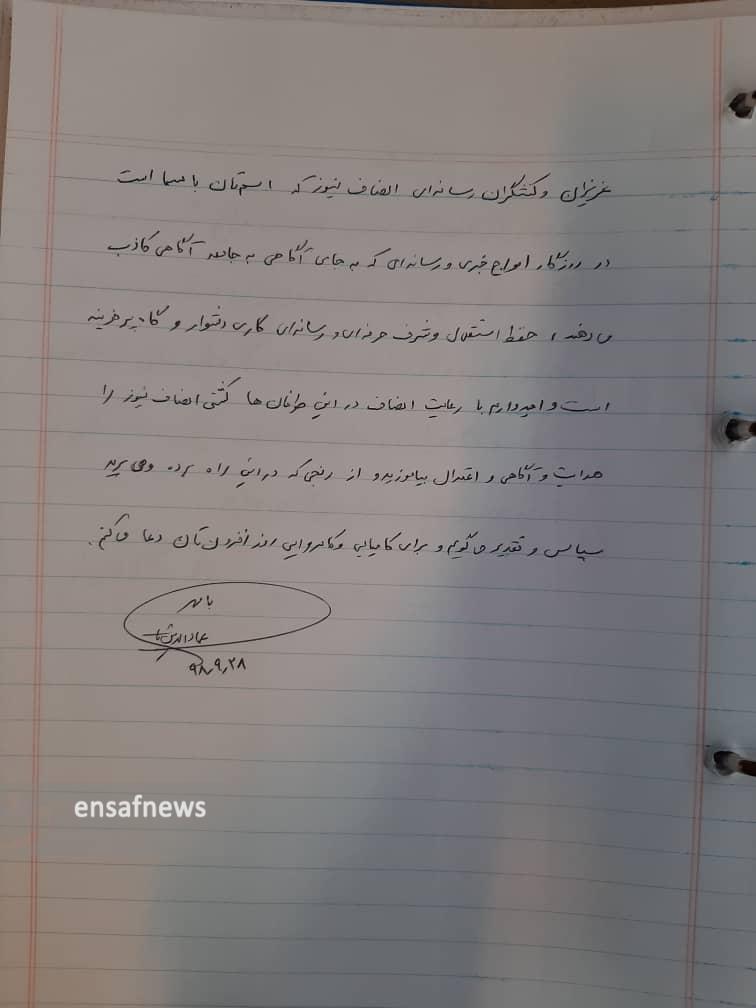 عزیزان و کنشگران رسانه‌ای انصاف نیوز که اسم‌تان با مسما است
در روزگار امواج خبری و رسانه‌ای که به جای آگاهی به جامعه آگاهی کاذب
می دهند، حفظ استقلال و شرف حرفه‌ای و رسانه‌ای کاری دشوار و گاه پرهزینه
است و امیدوارم با رعایت انصاف در این طوفان ها کشتی انصاف نیوز را
هدایت و آگاهی و اعتدال بیاموزید و از رنجی که در این راه برده و می برید
سپاس و تقدیر می گویم و برای کامیابی و کامروایی روز افزون‌تان دعا می کنم.
با مهر
عمادالدین
۹۸٫۹٫۲۸
ensafnews